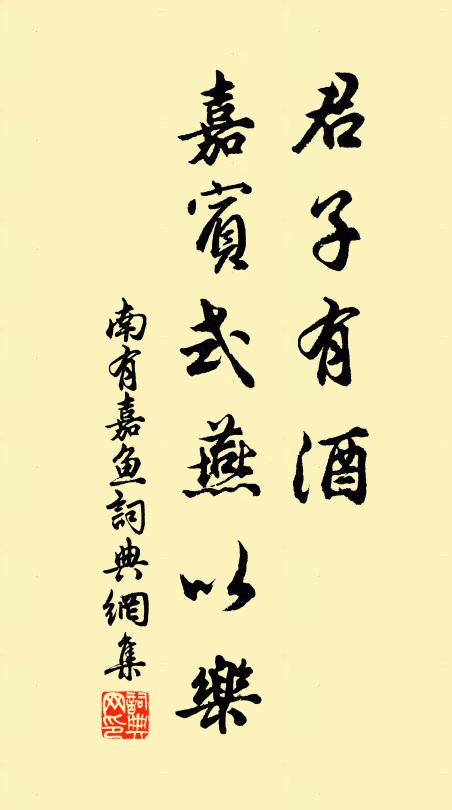 君子有酒
嘉賓式燕以樂
南有嘉魚詞典網集
詞典网印